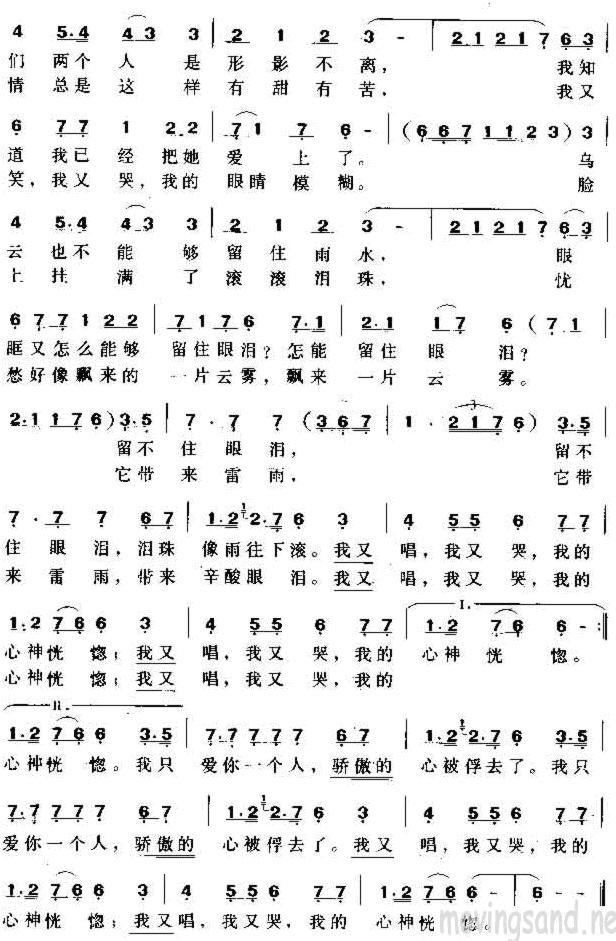 4 5·4 4 3 3 | 2 1 2 3 - | 2 1 2 1 7 6 3
们 两个 人 是 形 影 不 离， 我知
情 总是 这 样 有 甜 有 苦， 我又
6 7 7 1 2 2 | 7 1 7 6 - | ( 6 6 7 1 1 2 3 ) 3
道 我已 经 把她 爱 上 了。 乌
笑，我又 哭，我的 眼睛 模 糊。 脸
4 5·4 4 3 3 | 2 1 2 3 - | 2 1 2 1 7 6 3
云 也不 能 够 留 住 雨 水， 眼
上 挂 满 了 滚 滚 泪 珠， 忧
6 7 7 1 2 2 | 7 1 7 6 7·1 | 2·1 1 7 6 ( 7 1
眶又怎么能够 留住眼泪？怎能 留住 眼 泪？
愁好像飘来的 一片云雾，飘来 一片 云 雾。
2·1 1 7 6 ) 3·5 | 7 · 7 7 ( 3 6 7 | 1 · 2 1 7 6 ) 3·5
留不 住 眼 泪， 留不
它带 来 雷 雨， 它带
7 · 7 7 6 7 | 1·2 2·7 6 3 | 4 5 5 6 7 7
住 眼 泪，泪珠 像雨往下滚。我又 唱，我又 哭，我的
来 雷 雨，带来 辛酸眼 泪。我又 唱，我又 哭，我的
1·2 7 6 6 3 | 4 5 5 6 7 7 | I. 1·2 7 6 6 - :||
心神恍 惚；我又 唱，我又 哭，我的 心神 恍 惚。
心神恍 惚；我又 唱，我又 哭，我的
II.
1·2 7 6 6 3·5 | 7·7 7 7 7 6 7 | 1·2 2·7 6 3·5
心神恍 惚。我只 爱你一个人，骄傲的 心被俘去了。我只
7·7 7 7 7 6 7 | 1·2 2·7 6 3 | 4 5 5 6 7 7
爱你一个人，骄傲的 心被俘去了。我又 唱，我又哭，我的
1·2 7 6 6 3 | 4 5 5 6 7 7 | 1·2 7 6 6 - | 6 - - ||
心神恍 惚；我又唱，我又哭，我的 心神恍 惚。
movingsand.net